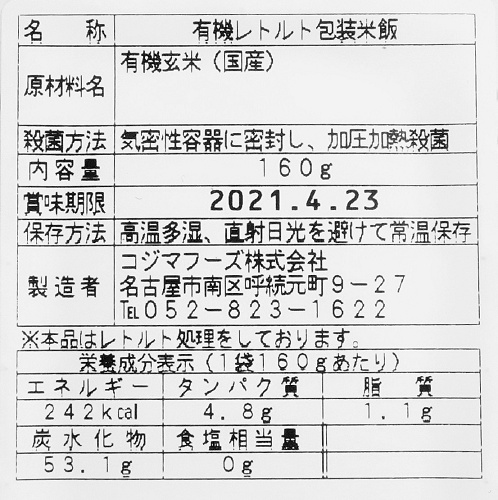 名称 有機レトルト包装米飯
原材料名 有機玄米（国産）
殺菌方法 気密性容器に密封し、加圧加熱殺菌
内容量 160g
賞味期限 2021.4.23
保存方法 高温多湿、直射日光を避けて常温保存
製造者 コジマフーズ株式会社
名古屋市南区呼続元町9-27
℡052-823-1622
※本品はレトルト処理をしております。
栄養成分表示（1袋160gあたり）
エネルギー タンパク質 脂質
242kcal 4.8g 1.1g
炭水化物 食塩相当量
53.1g 0g